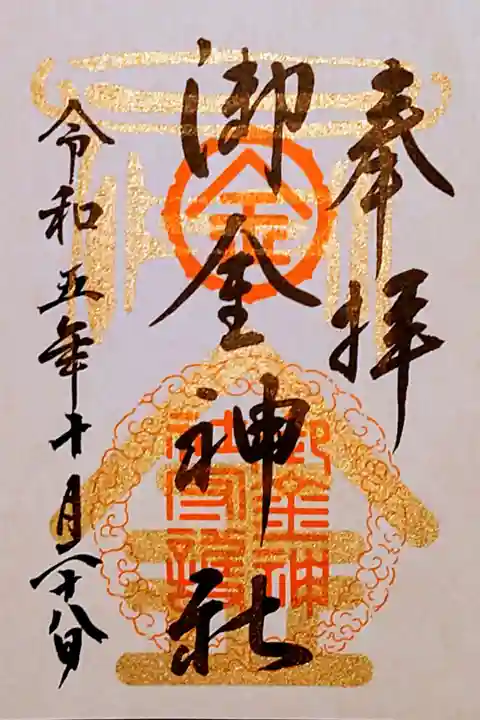 奉拝
御金神社
金
御金神
社守護
令和五年十月二十八日